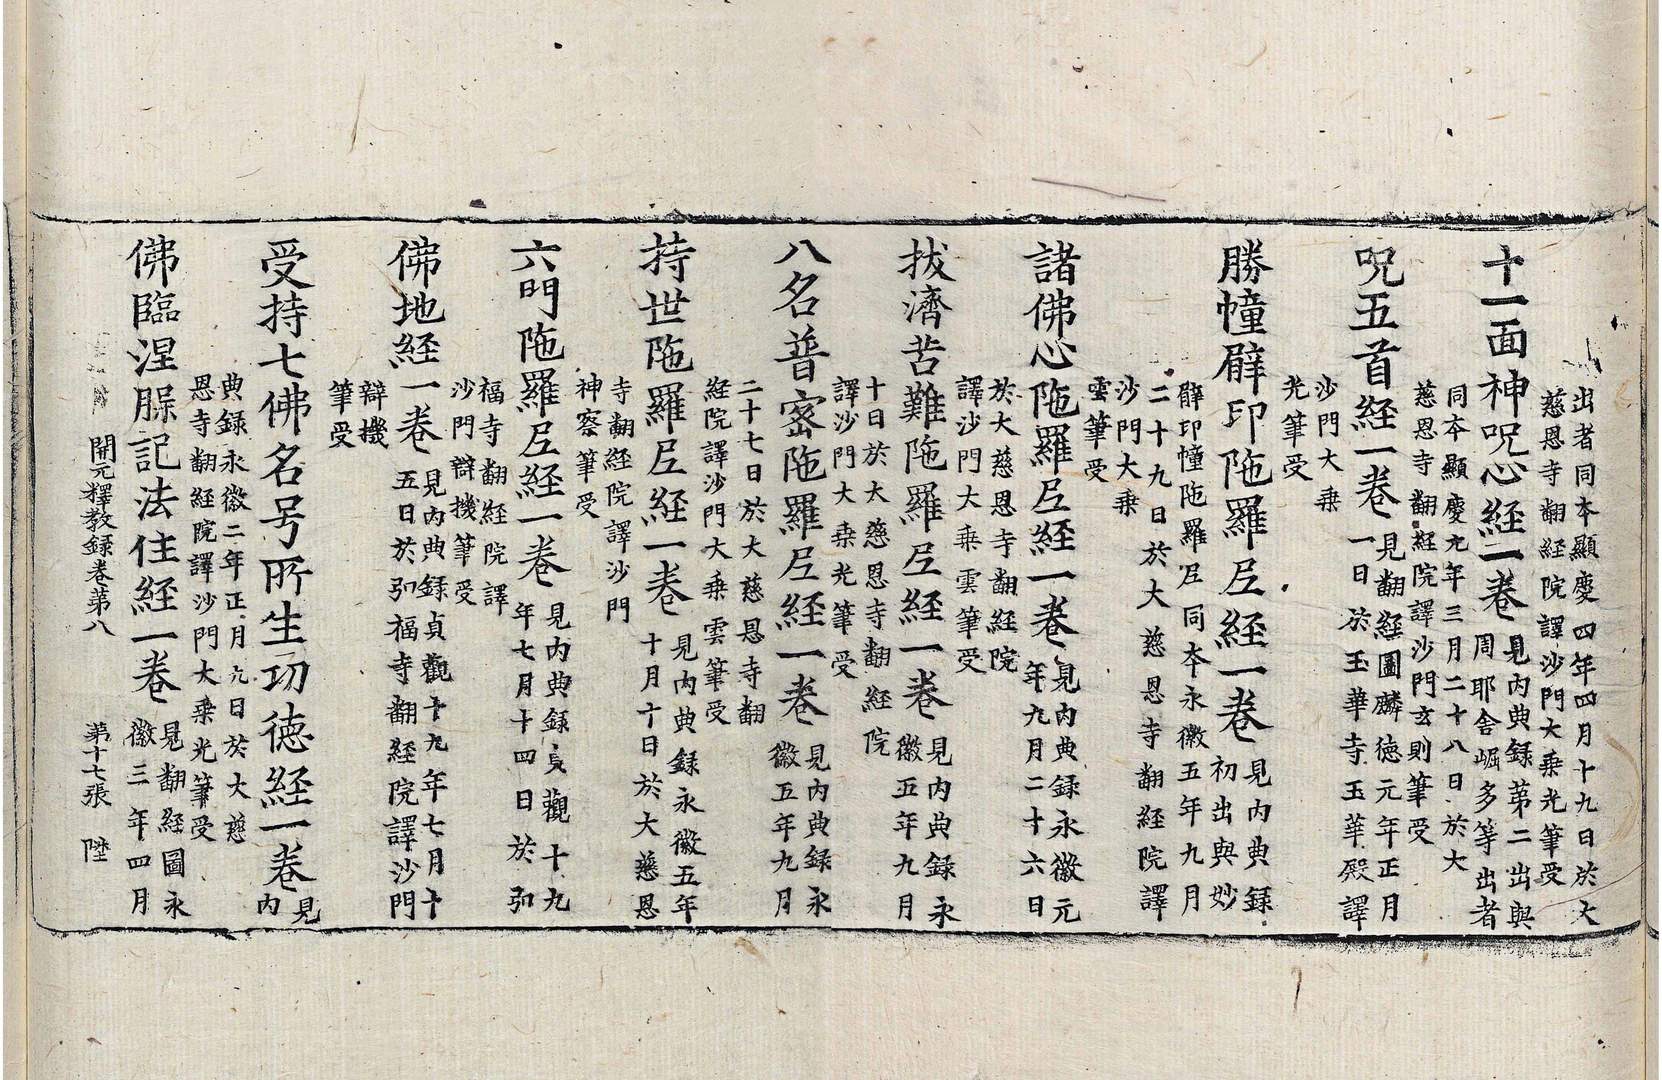 出者同本顯慶四年四月十九日於大
慈恩寺翻經院譯沙門大乗光筆受
十一面神呪心經一卷 見内典録第二出與
周耶舍崛多等出者
同本顯慶元年三月二十八日於大
慈恩寺翻經院譯沙門玄則筆受
呪五首經一卷 見翻經圖麟德元年正月
一日於玉華寺玉華殿譯
沙門大乗
光筆受
勝幢臂印陁羅尼經一卷 見内典録
初出與妙
臂印幢陁羅尼同本永徽五年九月
二十九日於大慈恩寺翻經院譯
沙門大乗
雲筆受
諸佛心陁羅尼經一卷 見内典録永徽元
年九月二十六日
於大慈恩寺翻經院
譯沙門大乗雲筆受
拔濟苦難陁羅尼經一卷 見内典録永
徽五年九月
十日於大慈恩寺翻經院
譯沙門大乗光筆受
八名普宻陁羅尼經一卷 見内典録永
徽五年九月
二十七日於大慈恩寺翻
經院譯沙門大乗雲筆受
持世陁羅尼經一卷 見内典録永徽五年
十月十日於大慈恩
寺翻經院譯沙門
神察筆受
六門陁羅尼經一卷 見内典録貞觀十九
年七月十四日於弘
福寺翻經院譯
沙門辯機筆受
佛地經一卷 見内典録貞觀十九年七月十
五日於弘福寺翻經院譯沙門
辯機
筆受
受持七佛名号所生功德經一卷 見
内
典録永徽二年正月九日於大慈
恩寺翻經院譯沙門大乗光筆受
佛臨涅槃記法住經一卷 見翻經圖永
徽三年四月
開元釋教録卷第八 第十七張 陞